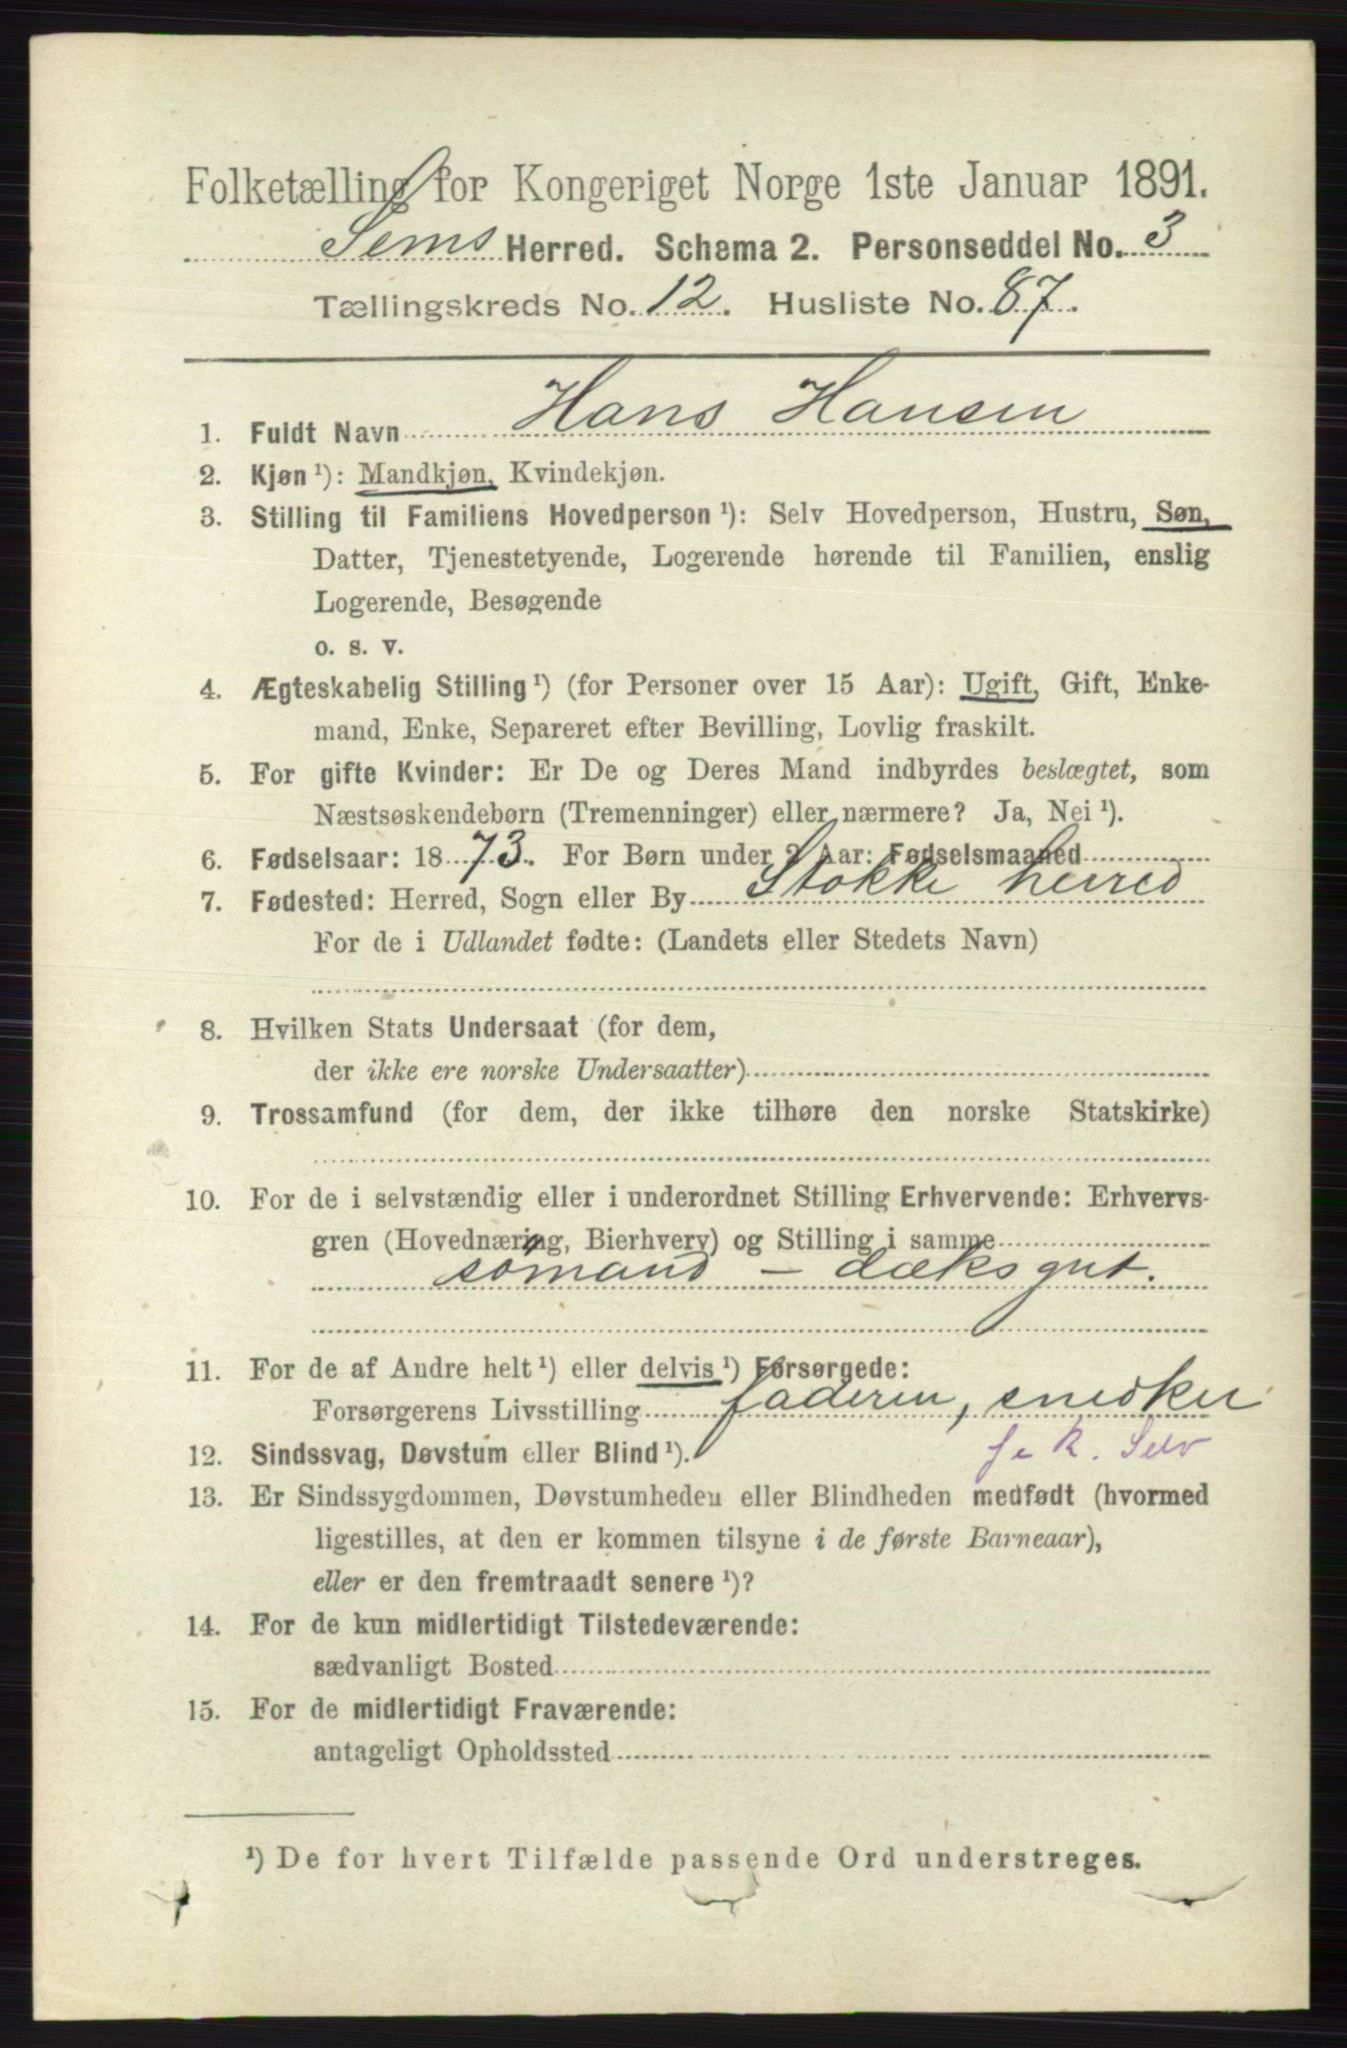 Folketælling for Kongeriget Norge 1ste Januar 1891.
Sems Herred. Schema 2. Personseddel No. 3
Tællingskreds No. 12. Husliste No. 87.
1. Fuldt Navn Hans Hansen
2. Kjøn ¹): Mandkjøn, Kvindekjøn.
3. Stilling til Familiens Hovedperson ¹): Selv Hovedperson, Hustru, Søn,
Datter, Tjenestetyende, Logerende hørende til Familien, enslig
Logerende, Besøgende
o. s. v.
4. Ægteskabelig Stilling ¹) (for Personer over 15 Aar): Ugift, Gift, Enke-
mand, Enke, Separeret efter Bevilling, Lovlig fraskilt.
5. For gifte Kvinder: Er De og Deres Mand indbyrdes beslægtet, som
Næstsøskendebørn (Tremenninger) eller nærmere? Ja, Nei ¹).
6. Fødselsaar: 1873. For Børn under 2 Aar: Fødselsmaaned
7. Fødested: Herred, Sogn eller By Stokke herred
For de i Udlandet fødte: (Landets eller Stedets Navn)
8. Hvilken Stats Undersaat (for dem,
der ikke ere norske Undersaatter)
9. Trossamfund (for dem, der ikke tilhøre den norske Statskirke)
10. For de i selvstændig eller i underordnet Stilling Erhvervende: Erhvervs-
gren (Hovednæring, Bierhverv) og Stilling i samme
sømand – dæksgut.
11. For de af Andre helt ¹) eller delvis ¹) Forsørgede:
Forsørgerens Livsstilling faderen, snedker
12. Sindssvag, Døvstum eller Blind ¹).
Selv
13. Er Sindssygdommen, Døvstumheden eller Blindheden medfødt (hvormed
ligestilles, at den er kommen tilsyne i de første Barneaar),
eller er den fremtraadt senere ¹)?
14. For de kun midlertidigt Tilstedeværende:
sædvanligt Bosted
15. For de midlertidigt Fraværende:
antageligt Opholdssted
¹) De for hvert Tilfælde passende Ord understreges.